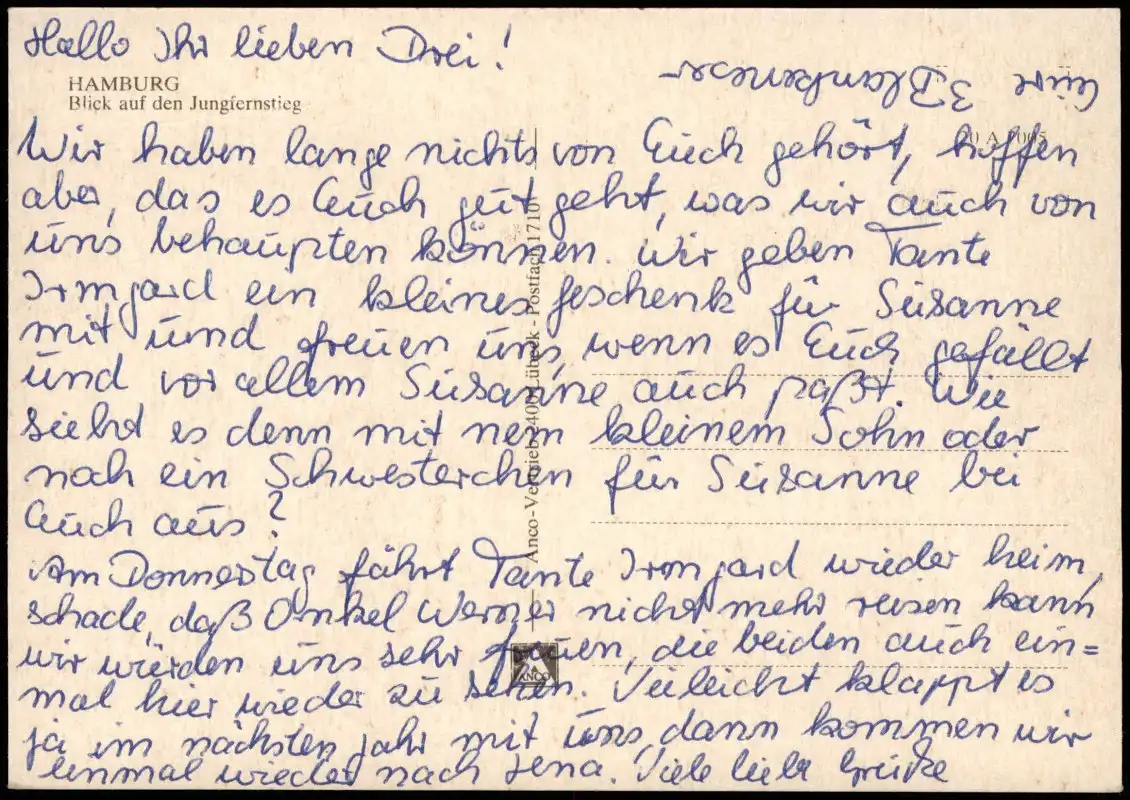 Hallo Ihr lieben Drei!
HAMBURG
Blick auf den Jungfernstieg
Wir haben lange nichts von Euch gehört, hoffen
aber, das es Euch gut geht, was wir auch von
uns behaupten können. Wir geben Tante
Irmgard ein kleines Geschenk für Susanne
mit und freuen uns, wenn es Euch gefällt
und vor allem Susanne auch paßt. Wie
sieht es denn mit nem kleinem Sohn oder
noch ein Schwesterchen für Susanne bei
Euch aus?
Am Donnerstag fährt Tante Irmgard wieder heim,
schade, daß Onkel Werner nicht mehr reisen kann
wir würden uns sehr freuen, die beiden auch ein=
mal hier wieder zu sehen. Vieleicht klappt es
ja im nächsten Jahr mit uns, dann kommen wir
einmal wieder nach Jena. Viele liebe Grüße
Eure 3 Blankeneser
Anco-Vertrieb, 2400 Lübeck - Postfach 1710
ANCO